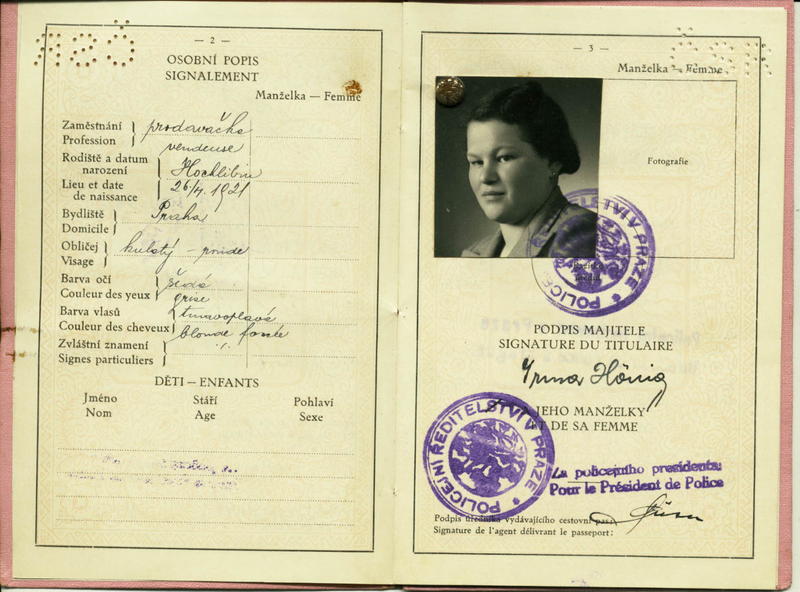 — 2 —
OSOBNÍ POPIS
SIGNALEMENT
Manželka — Femme
Zaměstnání
Profession
prodavačka
vendeuse
Rodiště a datum
narození
Lieu et date
de naissance
26/4. 1921
Bydliště
Domicile
Praha
Obličej
Visage
Barva očí
Couleur des yeux
šedá
grise
Barva vlasů
Couleur des cheveux
tmavoplavá
blonde
Zvláštní znamení
Signes particuliers
DĚTI — ENFANTS
Jméno Stáří Pohlaví
Nom Age Sexe
— 3 —
Manželka — Femme
Fotografie
POLICEJNÍ ŘEDITELSTVÍ V PRAZE
PODPIS MAJITELE
SIGNATURE DU TITULAIRE
Irma Hönig
JEHO MANŽELKY
ET DE SA FEMME
POLICEJNÍ ŘEDITELSTVÍ V PRAZE
Za policejního presidenta:
Pour le Président de Police
Podpis úředníka vydávajícího cestovní pas:
Signature de l'agent délivrant le passeport: